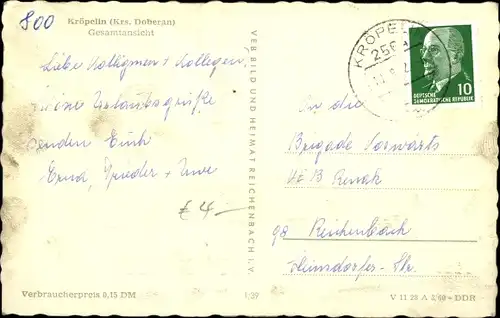 800
Kröpelin (Krs. Doberan)
Gesamtansicht
Liebe Kolleginnen + Kollegen,
Urlaubsgrüße
senden Euch
Erna, + Uwe
€ 4,-
VEB BILD UND HEIMAT REICHENBACH I. V.
1/39
KRÖPEL
256
10
DEUTSCHE
DEMOKRATISCHE REPUBLIK
An die
Brigade Vorwärts
VEB Renak
98 Reichenbach
Heinsdorfer-Str.
Verbraucherpreis 0,15 DM
V 11 28 A 2/60 - DDR